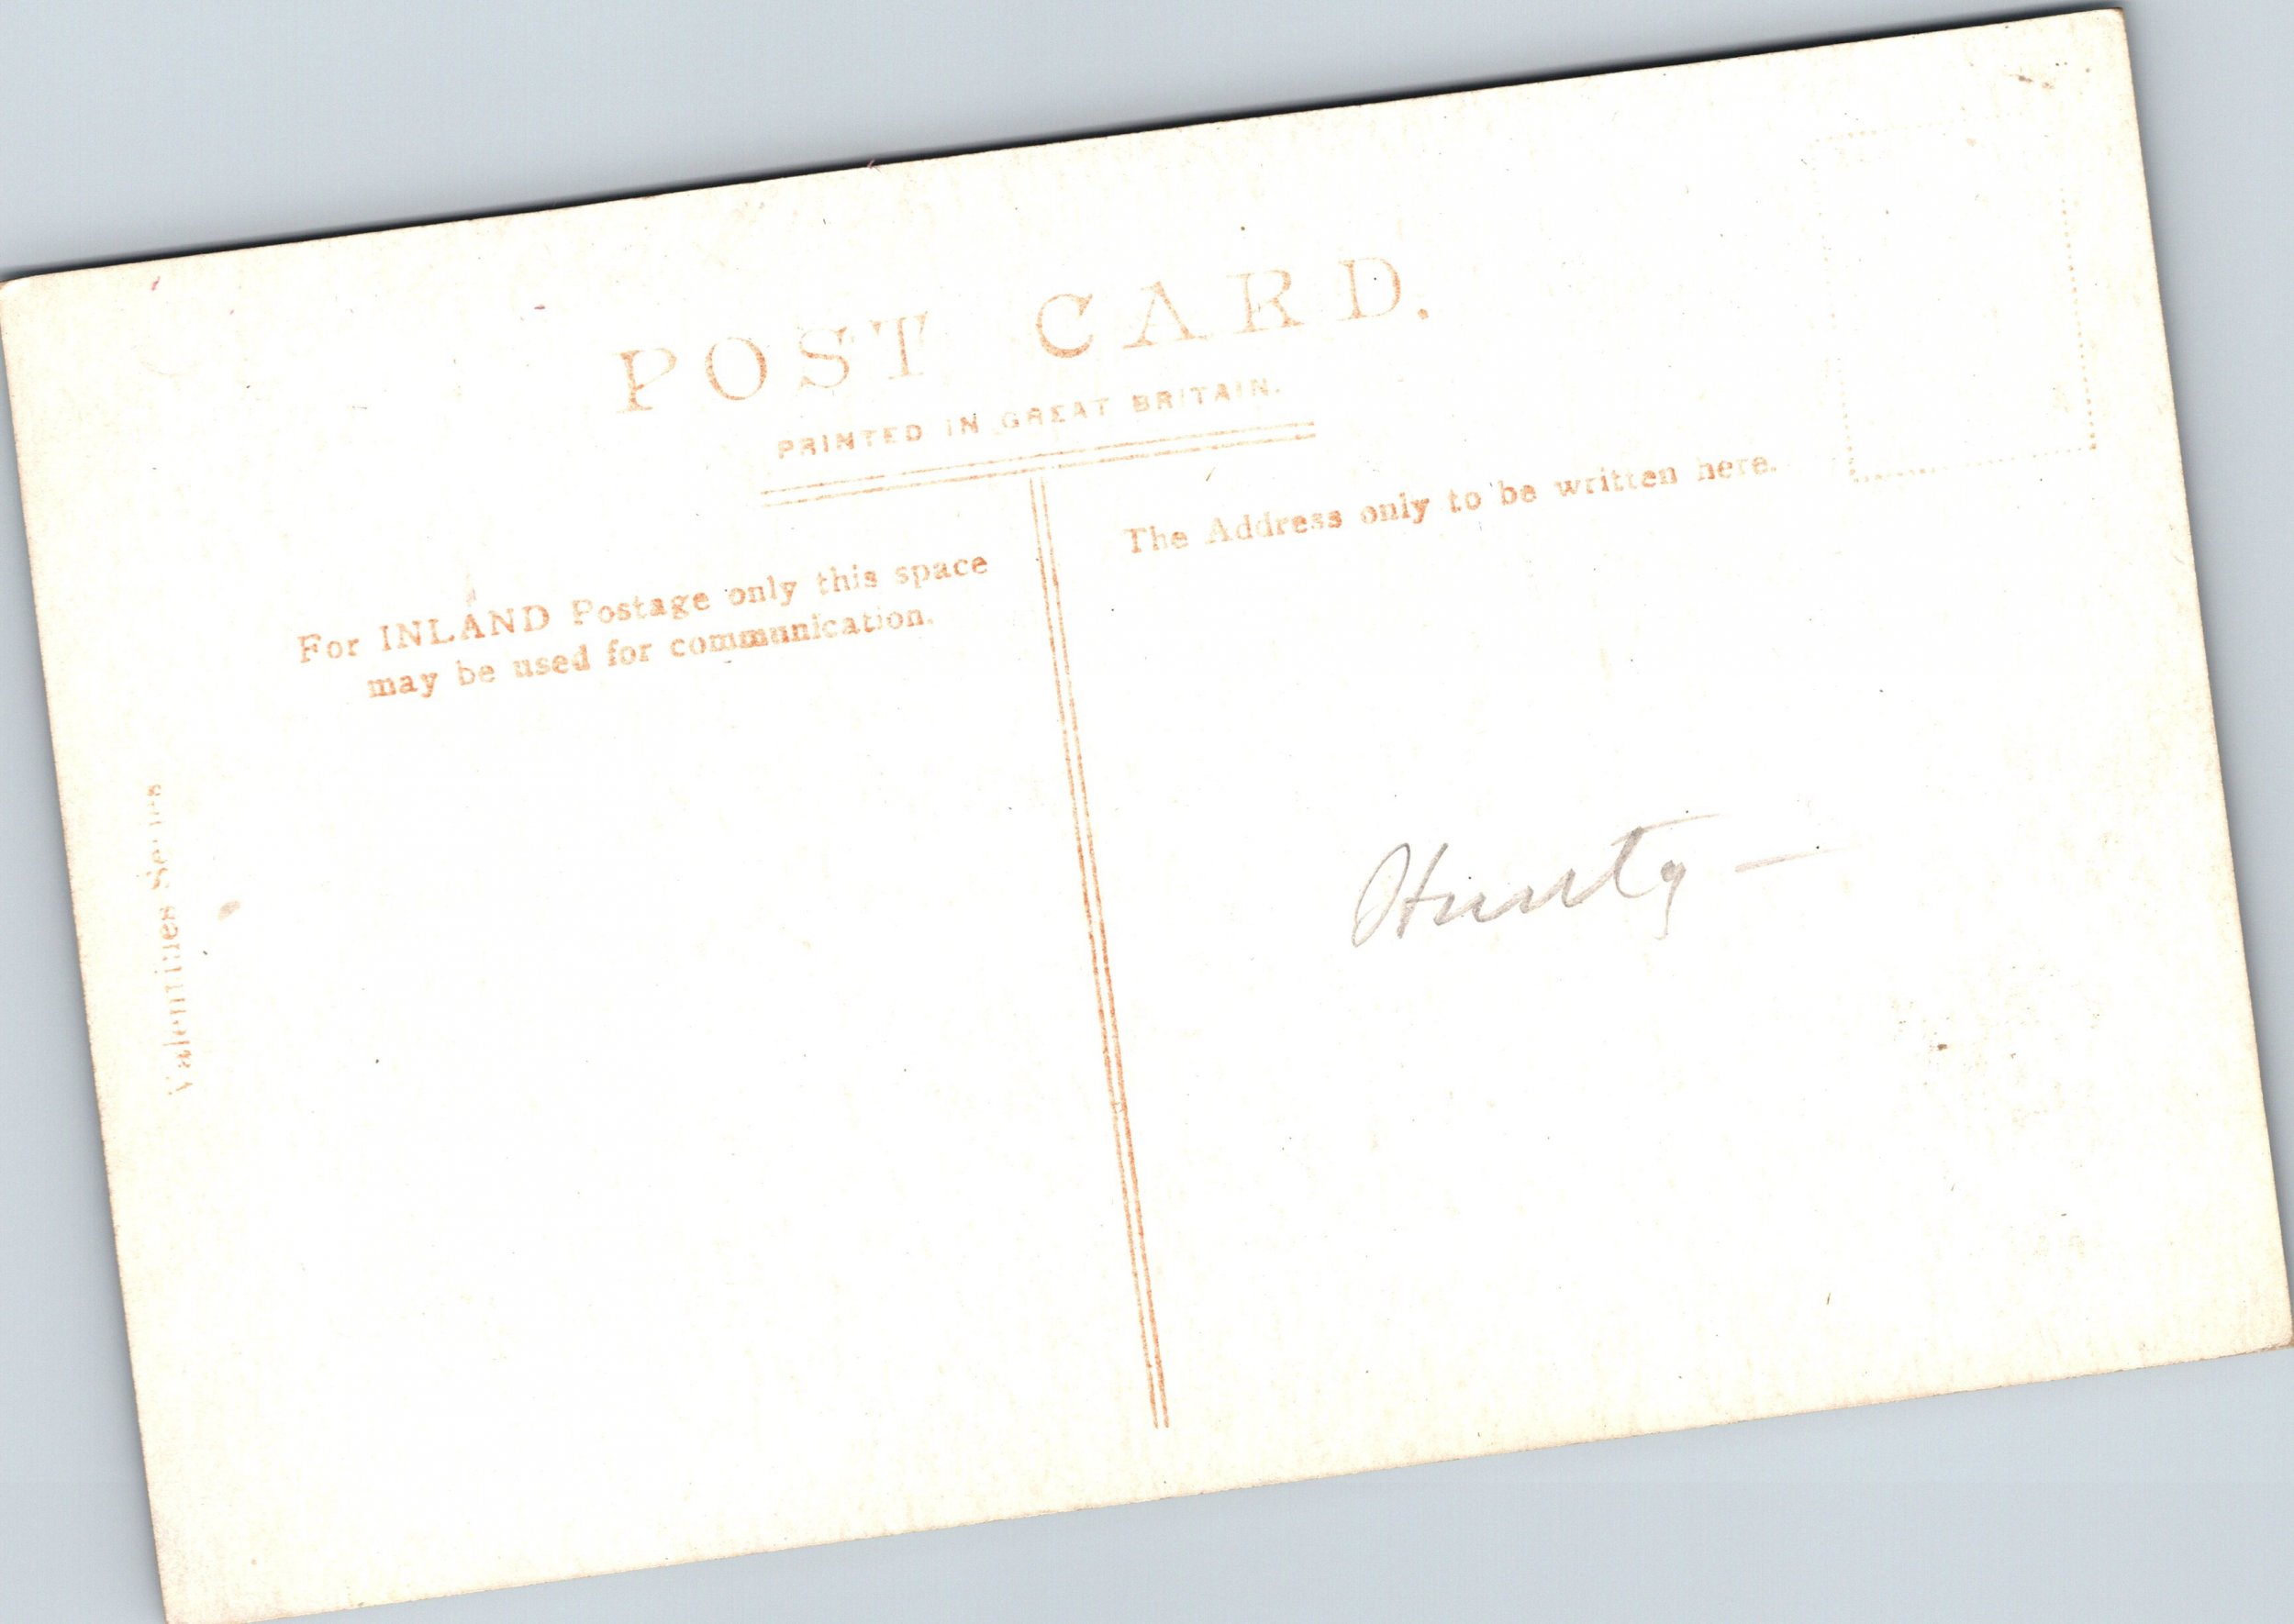 POST CARD.
PRINTED IN GREAT BRITAIN.
For INLAND Postage only this space
may be used for communication.
The Address only to be written here.
Valentines Series